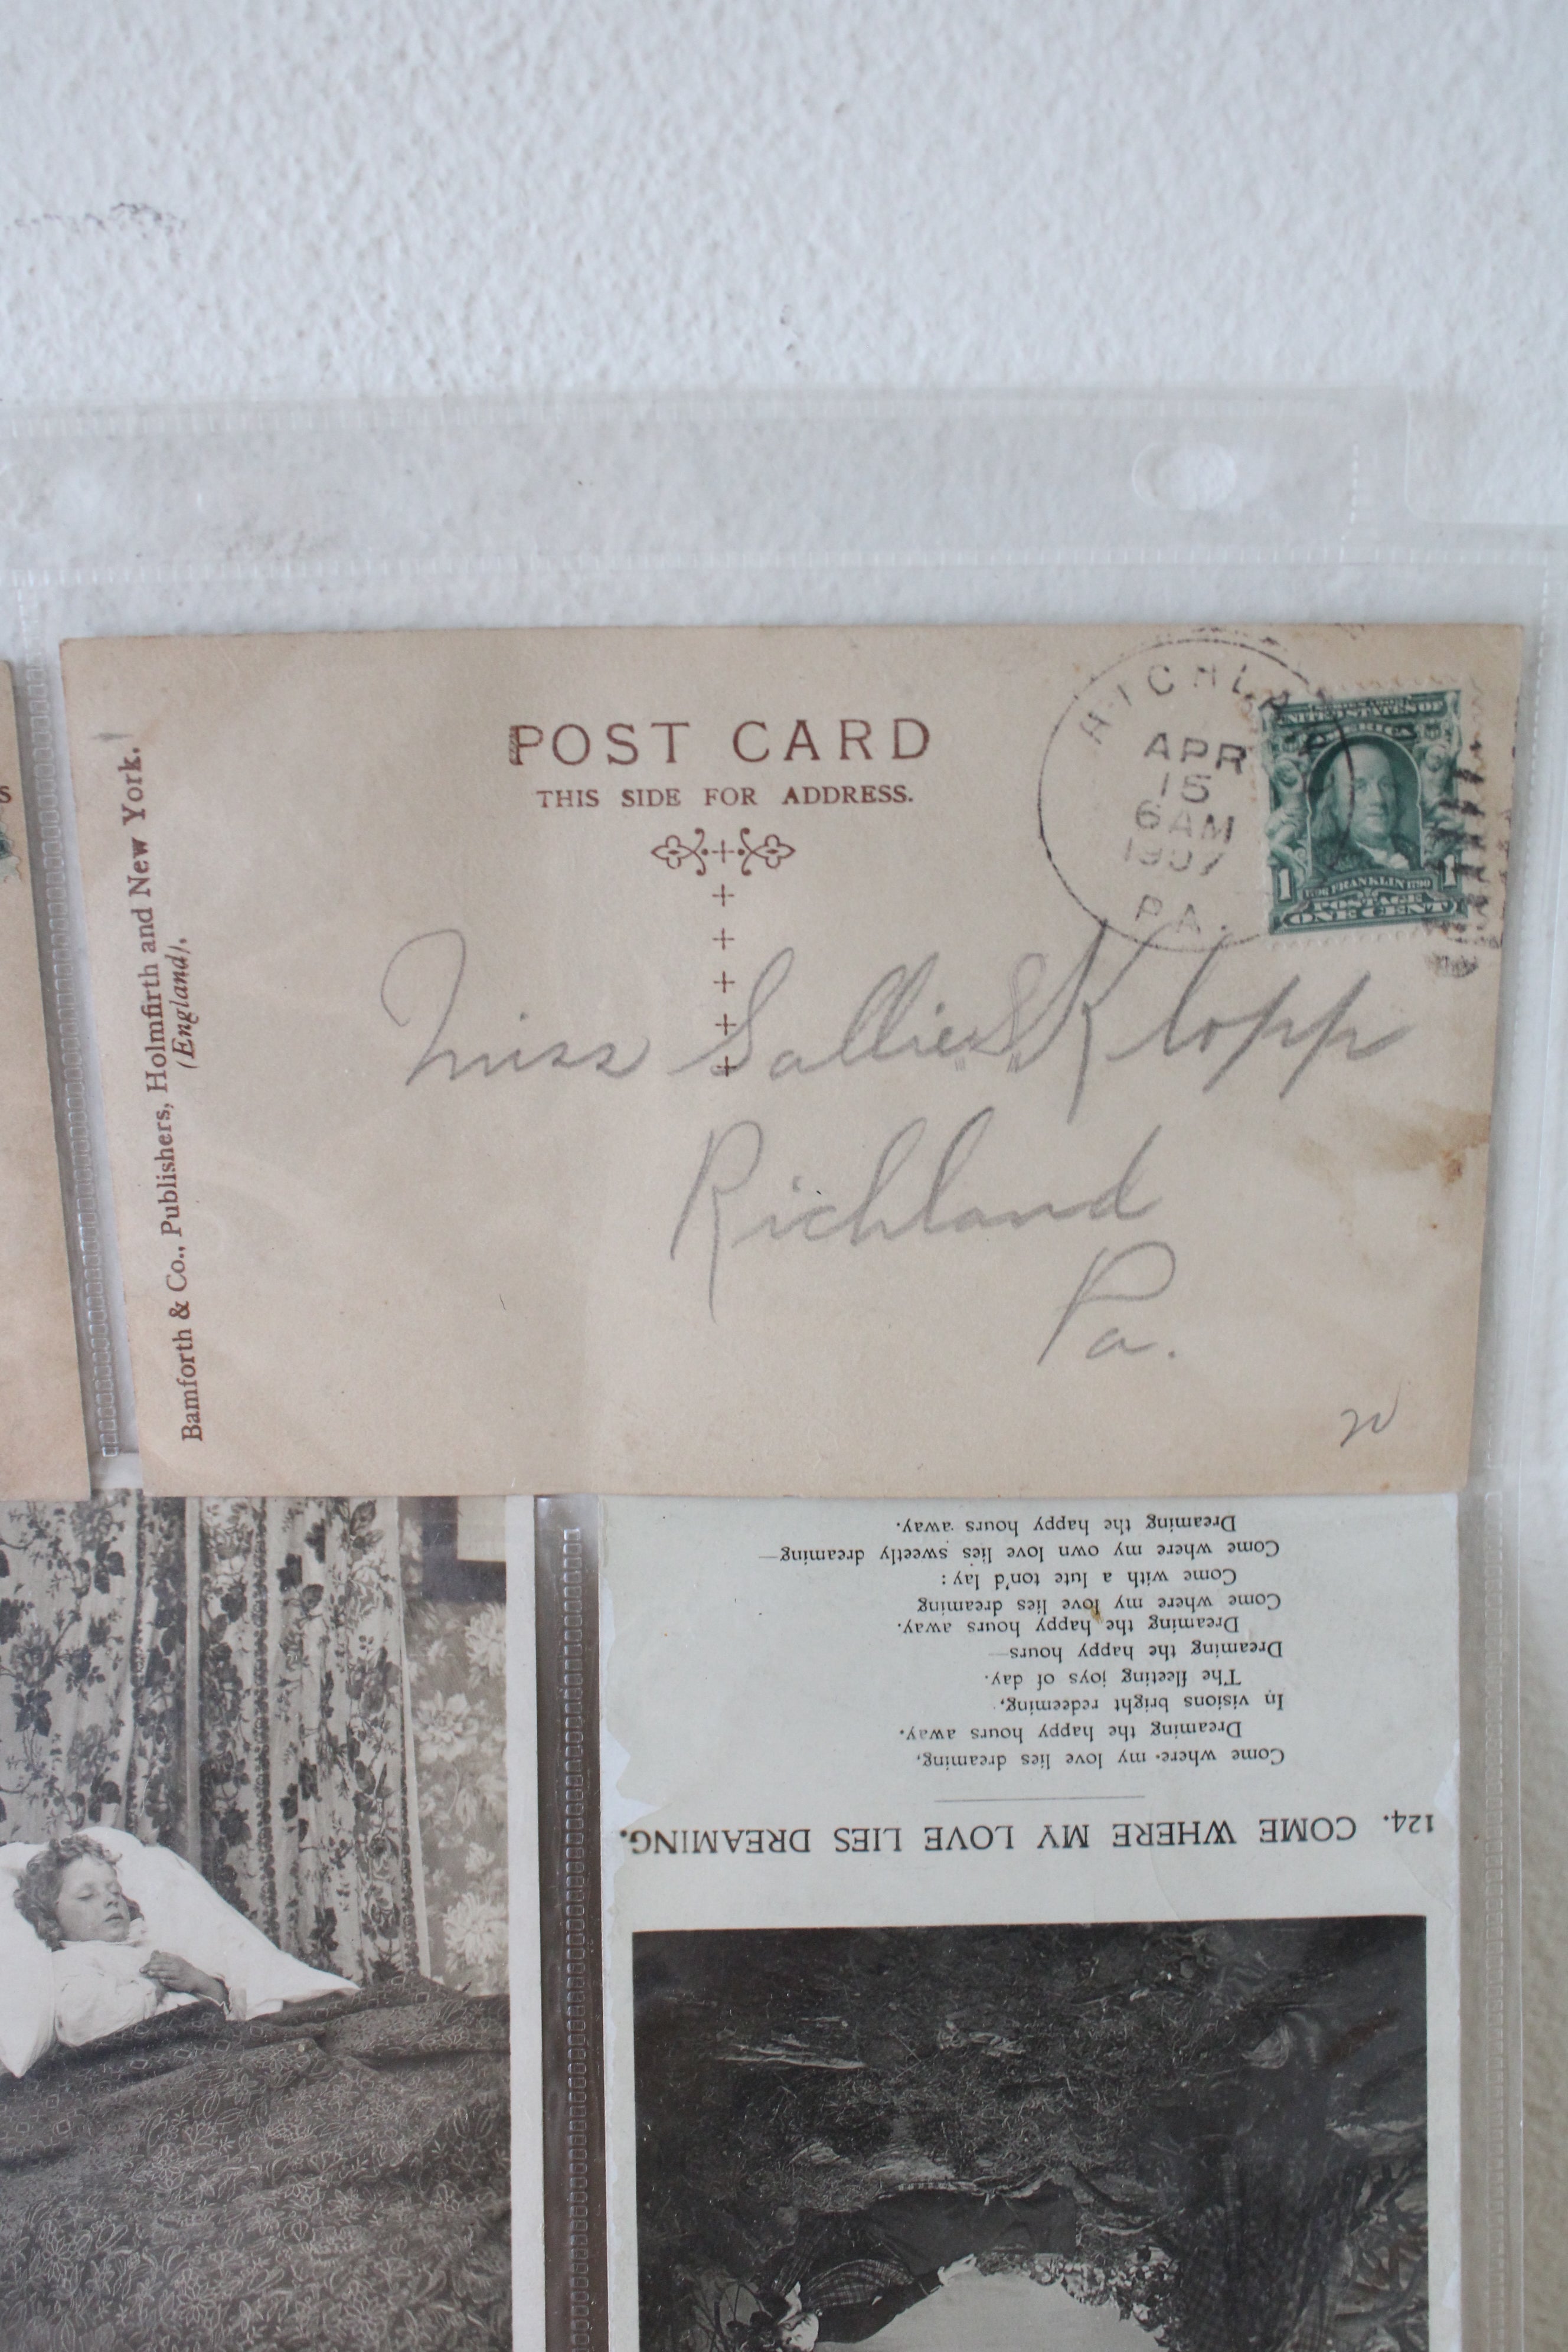 POST CARD
THIS SIDE FOR ADDRESS.
Bamforth & Co., Publishers, Holmfirth and New York.
(England).
RICHLA
APR
15
6 AM
1907
PA.
UNITED STATES OF
AMERICA
1 1
1706 FRANKLIN 1790
POSTAGE
ONE CENT
Miss Sallie S. Klopp
Richland
Pa.
20
S
124. COME WHERE MY LOVE LIES DREAMING.
Come where my love lies dreaming,
Dreaming the happy hours away.
In visions bright redeeming,
The fleeting joys of day.
Dreaming the happy hours—
Dreaming the happy hours away.
Come where my love lies dreaming
Come with a lute ton'd lay:
Come where my own love lies sweetly dreaming—
Dreaming the happy hours away.